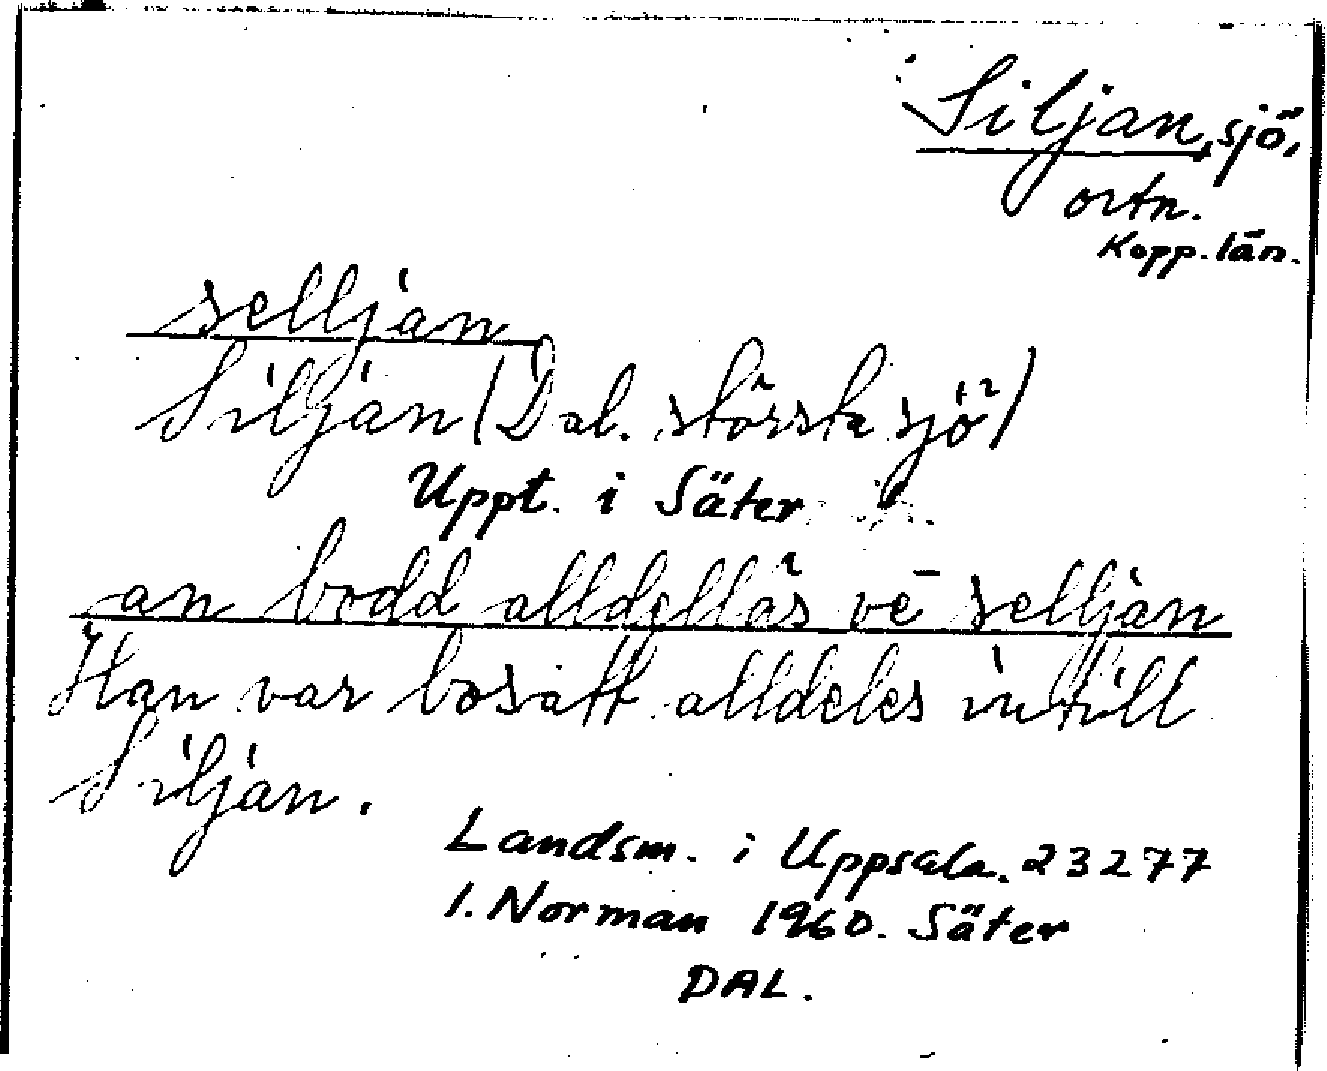 Siljan, sjö,
ortn.
Kopp. län.
selljan
Siljan (Dal. största sjö)
Uppt. i Säter
an bodd alldelläs vē selljan
Han var bosatt alldeles intill
Siljan.
Landsm. i Uppsala. 23277
I. Norman 1960. Säter
DAL.